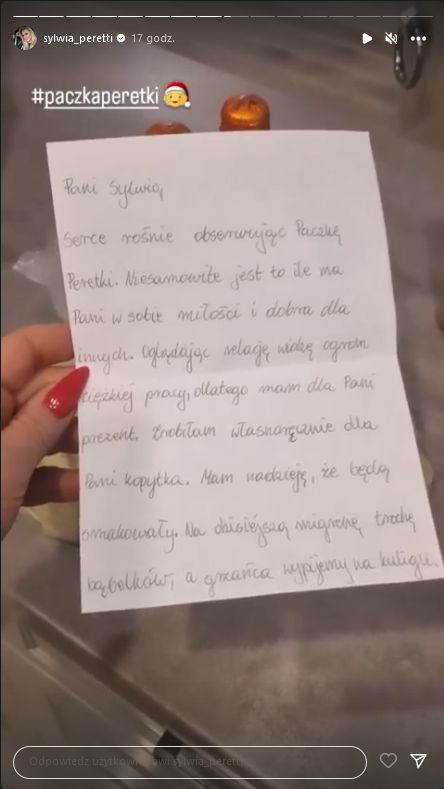 sylwia_peretti 17 godz.
#paczkaperetki
Pani Sylwio,
Serce rośnie obserwując Paczkę
Peretki. Niesamowite jest to ile ma
Pani w sobie miłości i dobra dla
innych. Oglądając relację widzę ogrom
ciężkiej pracy, dlatego mam dla Pani
prezent. Zrobiłam własnoręcznie dla
Pani kopytka. Mam nadzieję, że będą
smakowały. Na dzisiejszą migrenę trochę
bąbelków, a grzańca wypijemy na kuligu.
Odpowiedz użytkownikowi sylwia_peretti